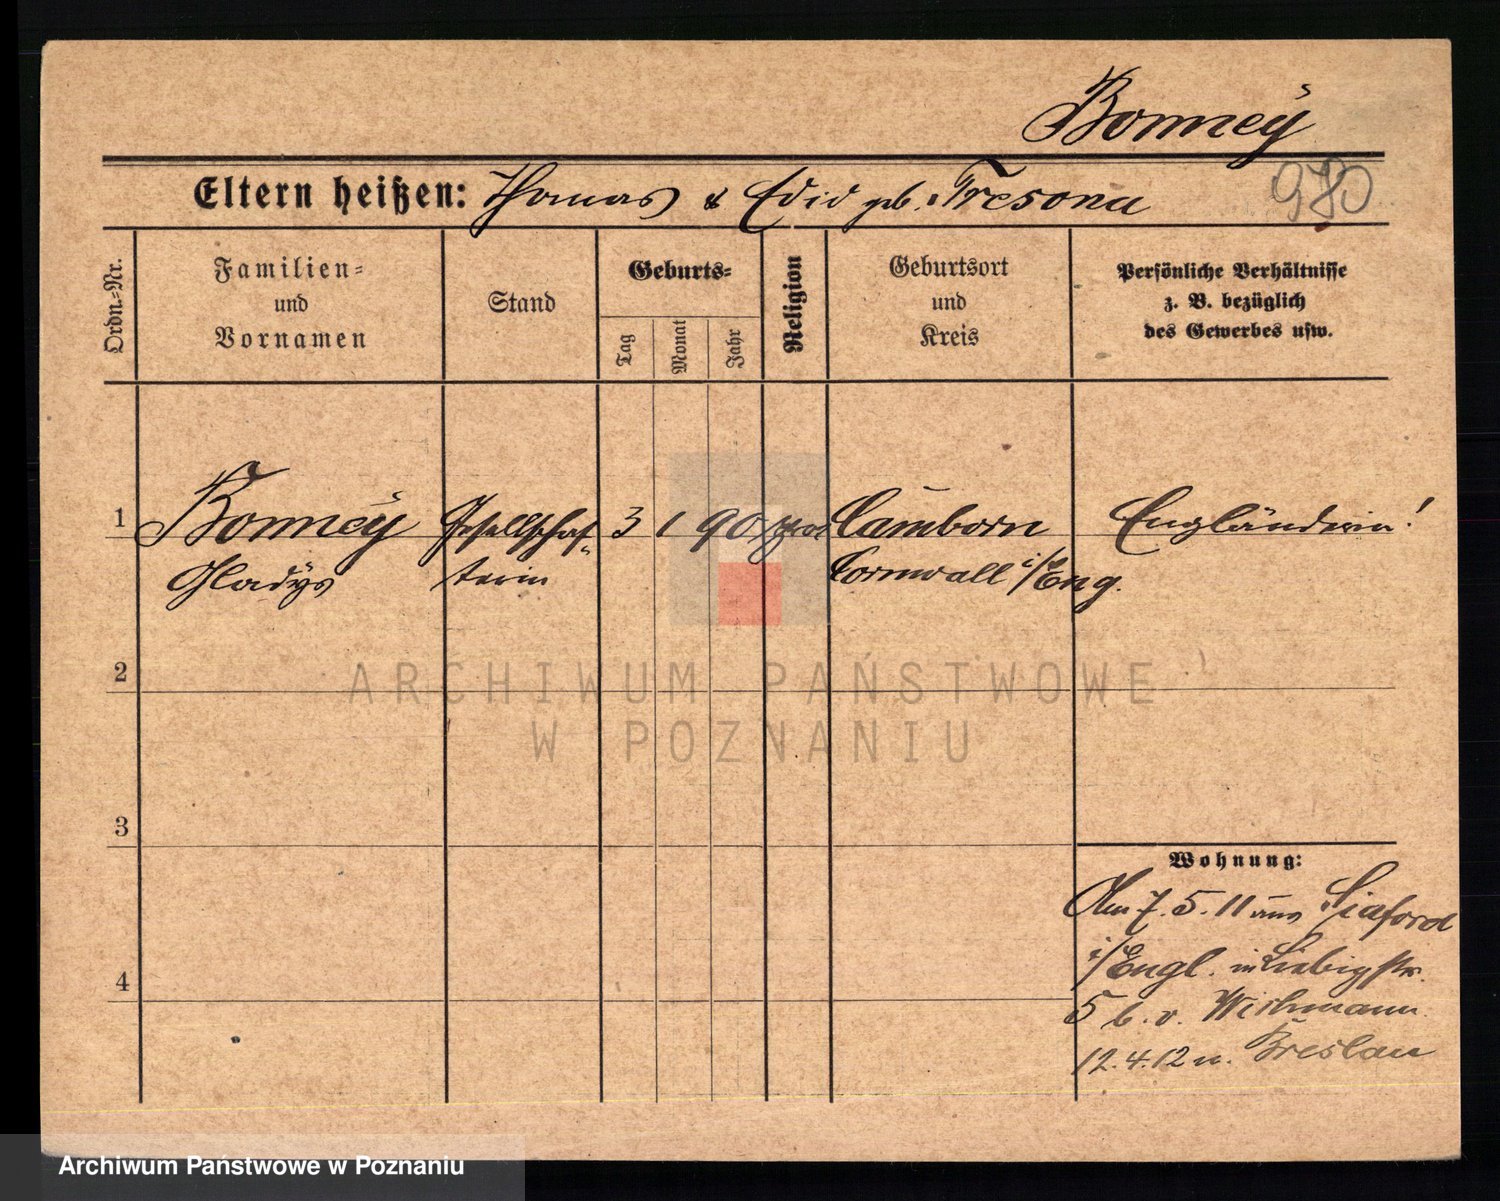 Bonney
Eltern heißen: Thomas & Edid geb. Tresona
980
Ordn.-Nr.
Familien-
und
Vornamen
Stand
Geburts-
Tag
Monat
Jahr
Religion
Geburtsort
und
Kreis
Persönliche Verhältnisse
z. B. bezüglich
des Gewerbes usw.
1 Bonney Gesellschaf- 3 1 90 Camborn Engländerin!
Gladys terin Cornwall i/Eng.
2
ARCHIWUM PAŃSTWOWE
W POZNANIU
3
Wohnung:
Am 7.5.11 aus Siaford
i/Engl. in Liebigstr.
4
5 b. v. Wichmann
12.4.12 n. Breslau
Archiwum Państwowe w Poznaniu